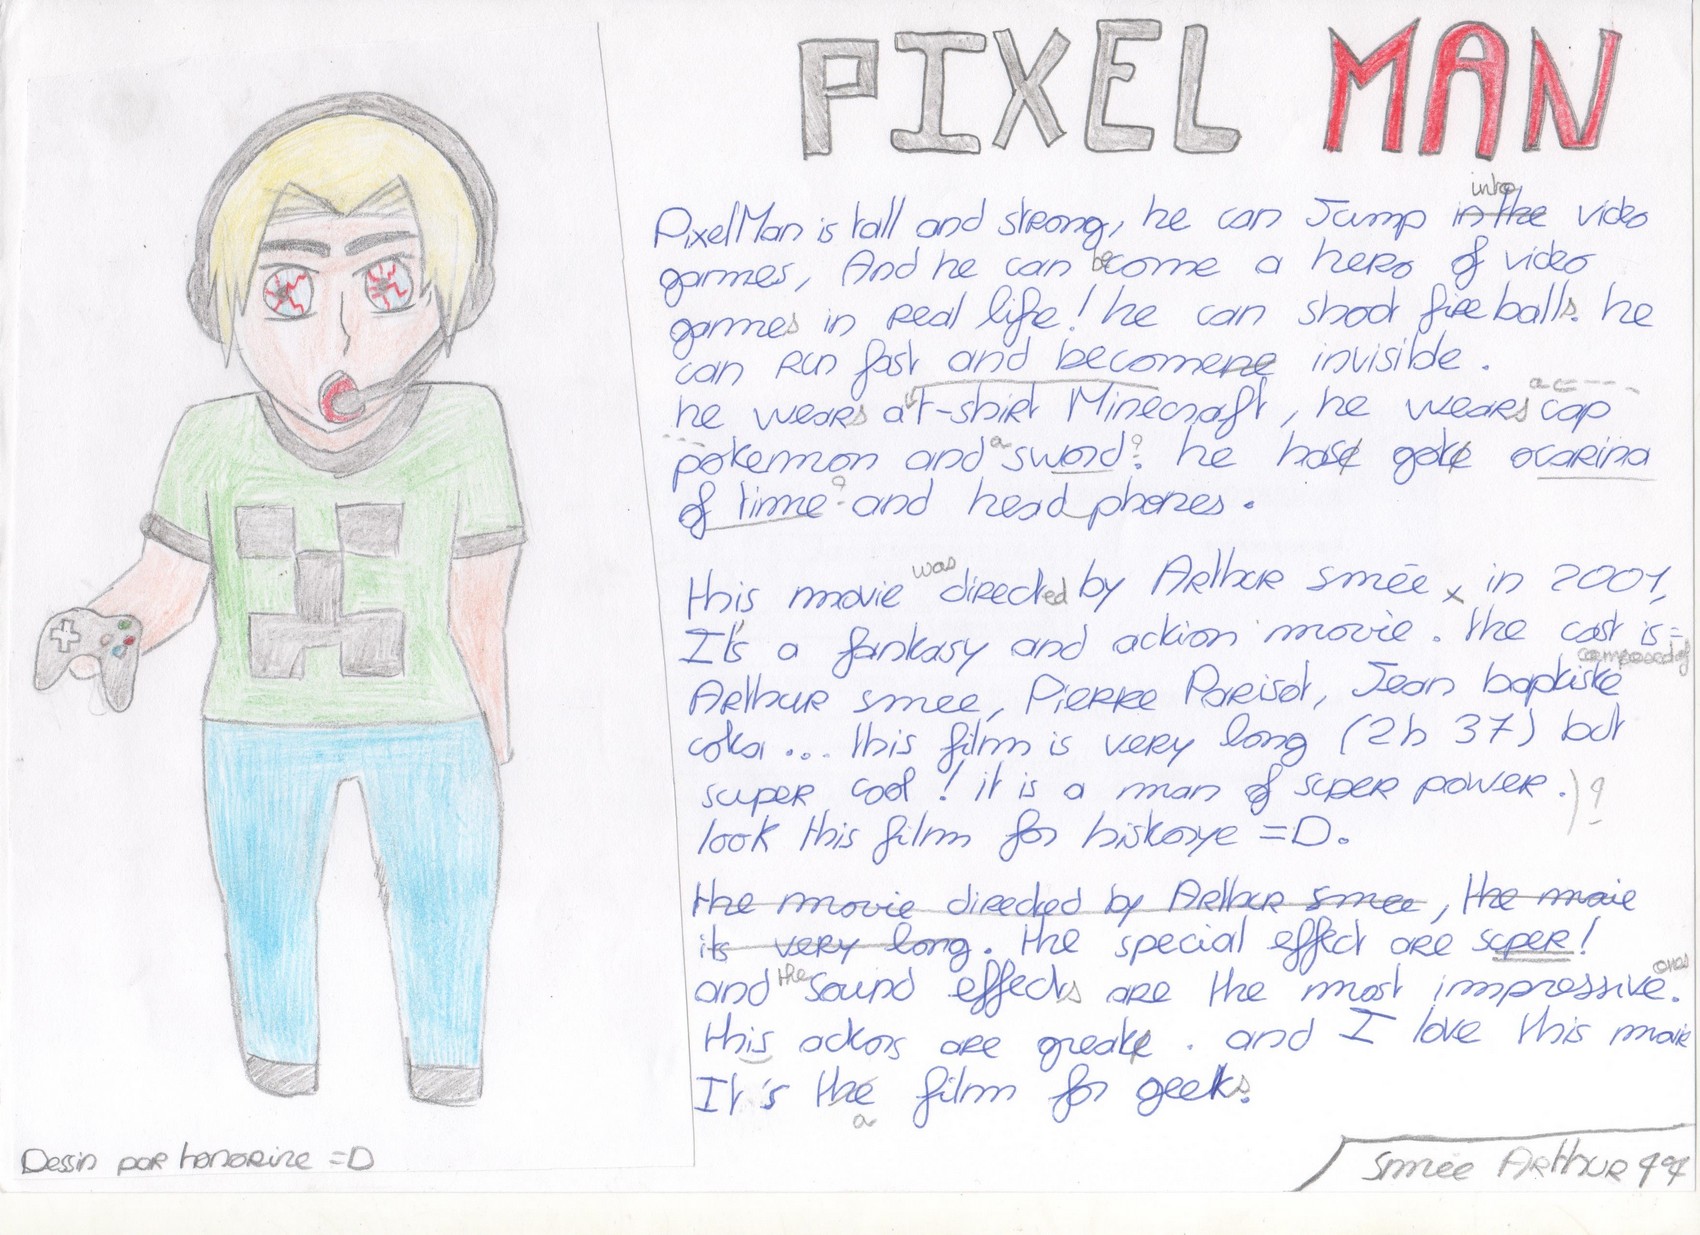 PIXEL MAN
into
PixelMan is tall and strong, he can Jump in the video
games, And he can become a hero of video
games in real life! he can shoot fire balls. he
can run fast and becomene invisible.
he wears a T-shirt Minecraft, he wears cap
pokemon and a sword? he hase gote ocarina
of time? and head phones.
this movie was directed by Arthur smée x in 2001,
It's a fantasy and action movie. the cast is =
composed of
Arthur smee, Pierre Parisot, Jean baptiste
coka ... this film is very long (2h 37) but
super cool! it is a man of super power. )?
look this film for
=D.
the movie directed by Arthur smee, the movie
its very long. the special effect are super!
ones
and the sound effects are the most impressive.
this actors are greate. and I love this movie
It's the film for geeks.
a
Dessin par honorine =D
Smée Arthur 4°4